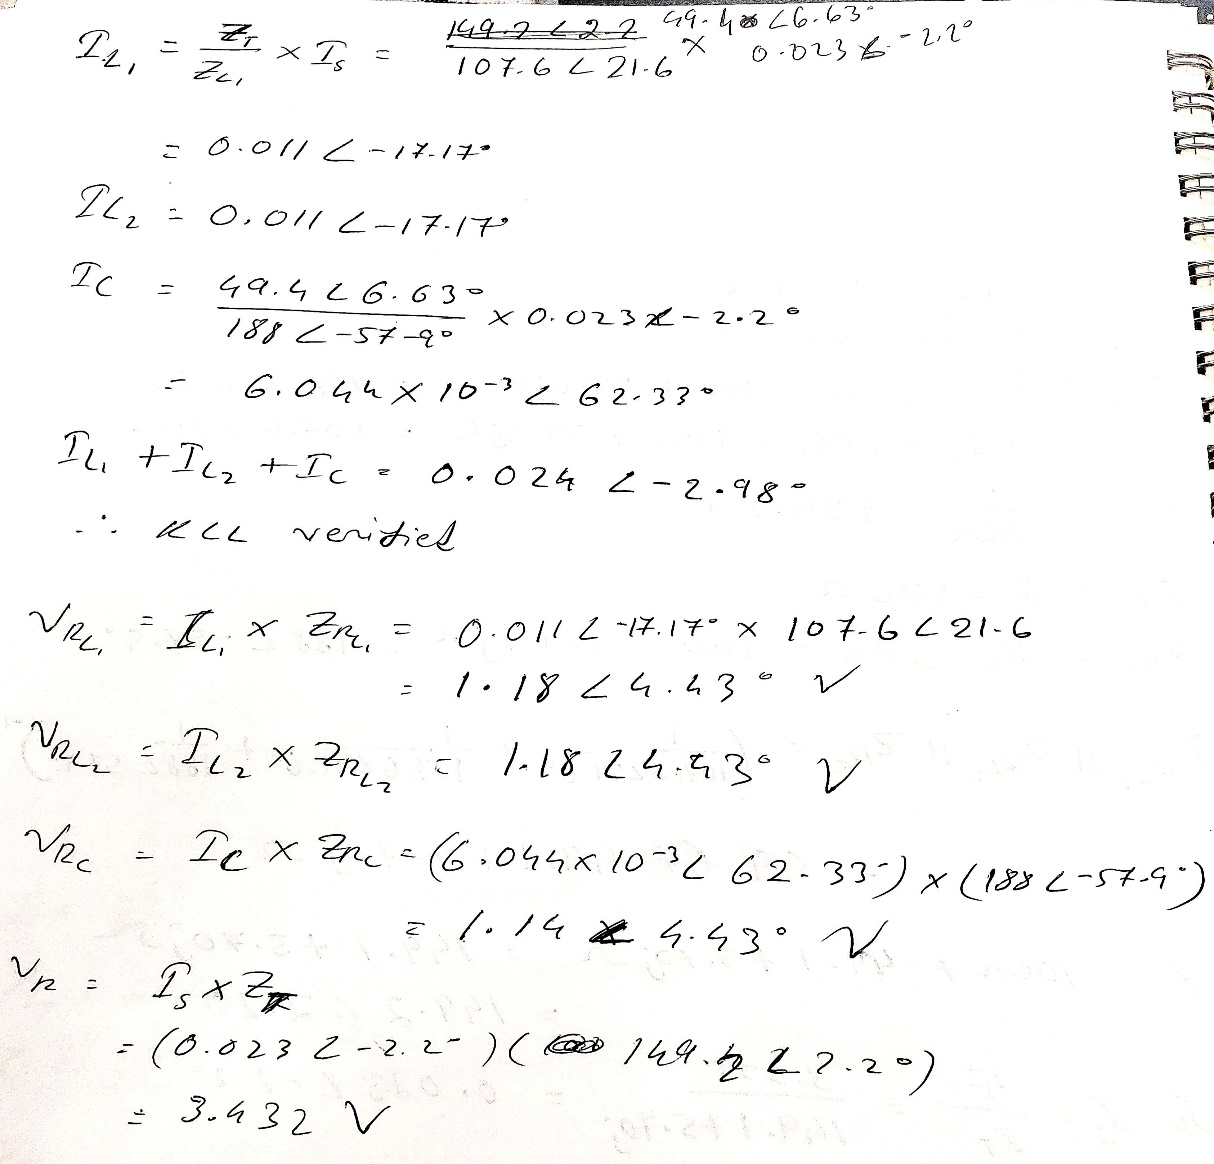 I_L₁ = Z_T / Z_L₁ × I_s = 49.4 ∠6.63° / 107.6 ∠ 21.6 × 0.023 ∠ -2.2°
= 0.011 ∠ -17.17°
I_L₂ = 0.011 ∠ -17.17°
I_C = 49.4 ∠ 6.63° / 188 ∠ -57.9° × 0.023 ∠ -2.2°
= 6.044 × 10⁻³ ∠ 62.33°
I_L₁ + I_L₂ + I_C = 0.024 ∠ -2.98°
∴ KCL verified
V_RL₁ = I_L₁ × Z_RL₁ = 0.011 ∠ -17.17° × 107.6 ∠ 21.6
= 1.18 ∠ 4.43° V
V_RL₂ = I_L₂ × Z_RL₂ = 1.18 ∠ 4.43° V
V_RC = I_C × Z_RC = (6.044 × 10⁻³ ∠ 62.33°) × (188 ∠ -57.9°)
= 1.14 ∠ 4.43° V
V_R = I_s × Z
= (0.023 ∠ -2.2°) ( 149.2 ∠ 2.2°)
= 3.432 V